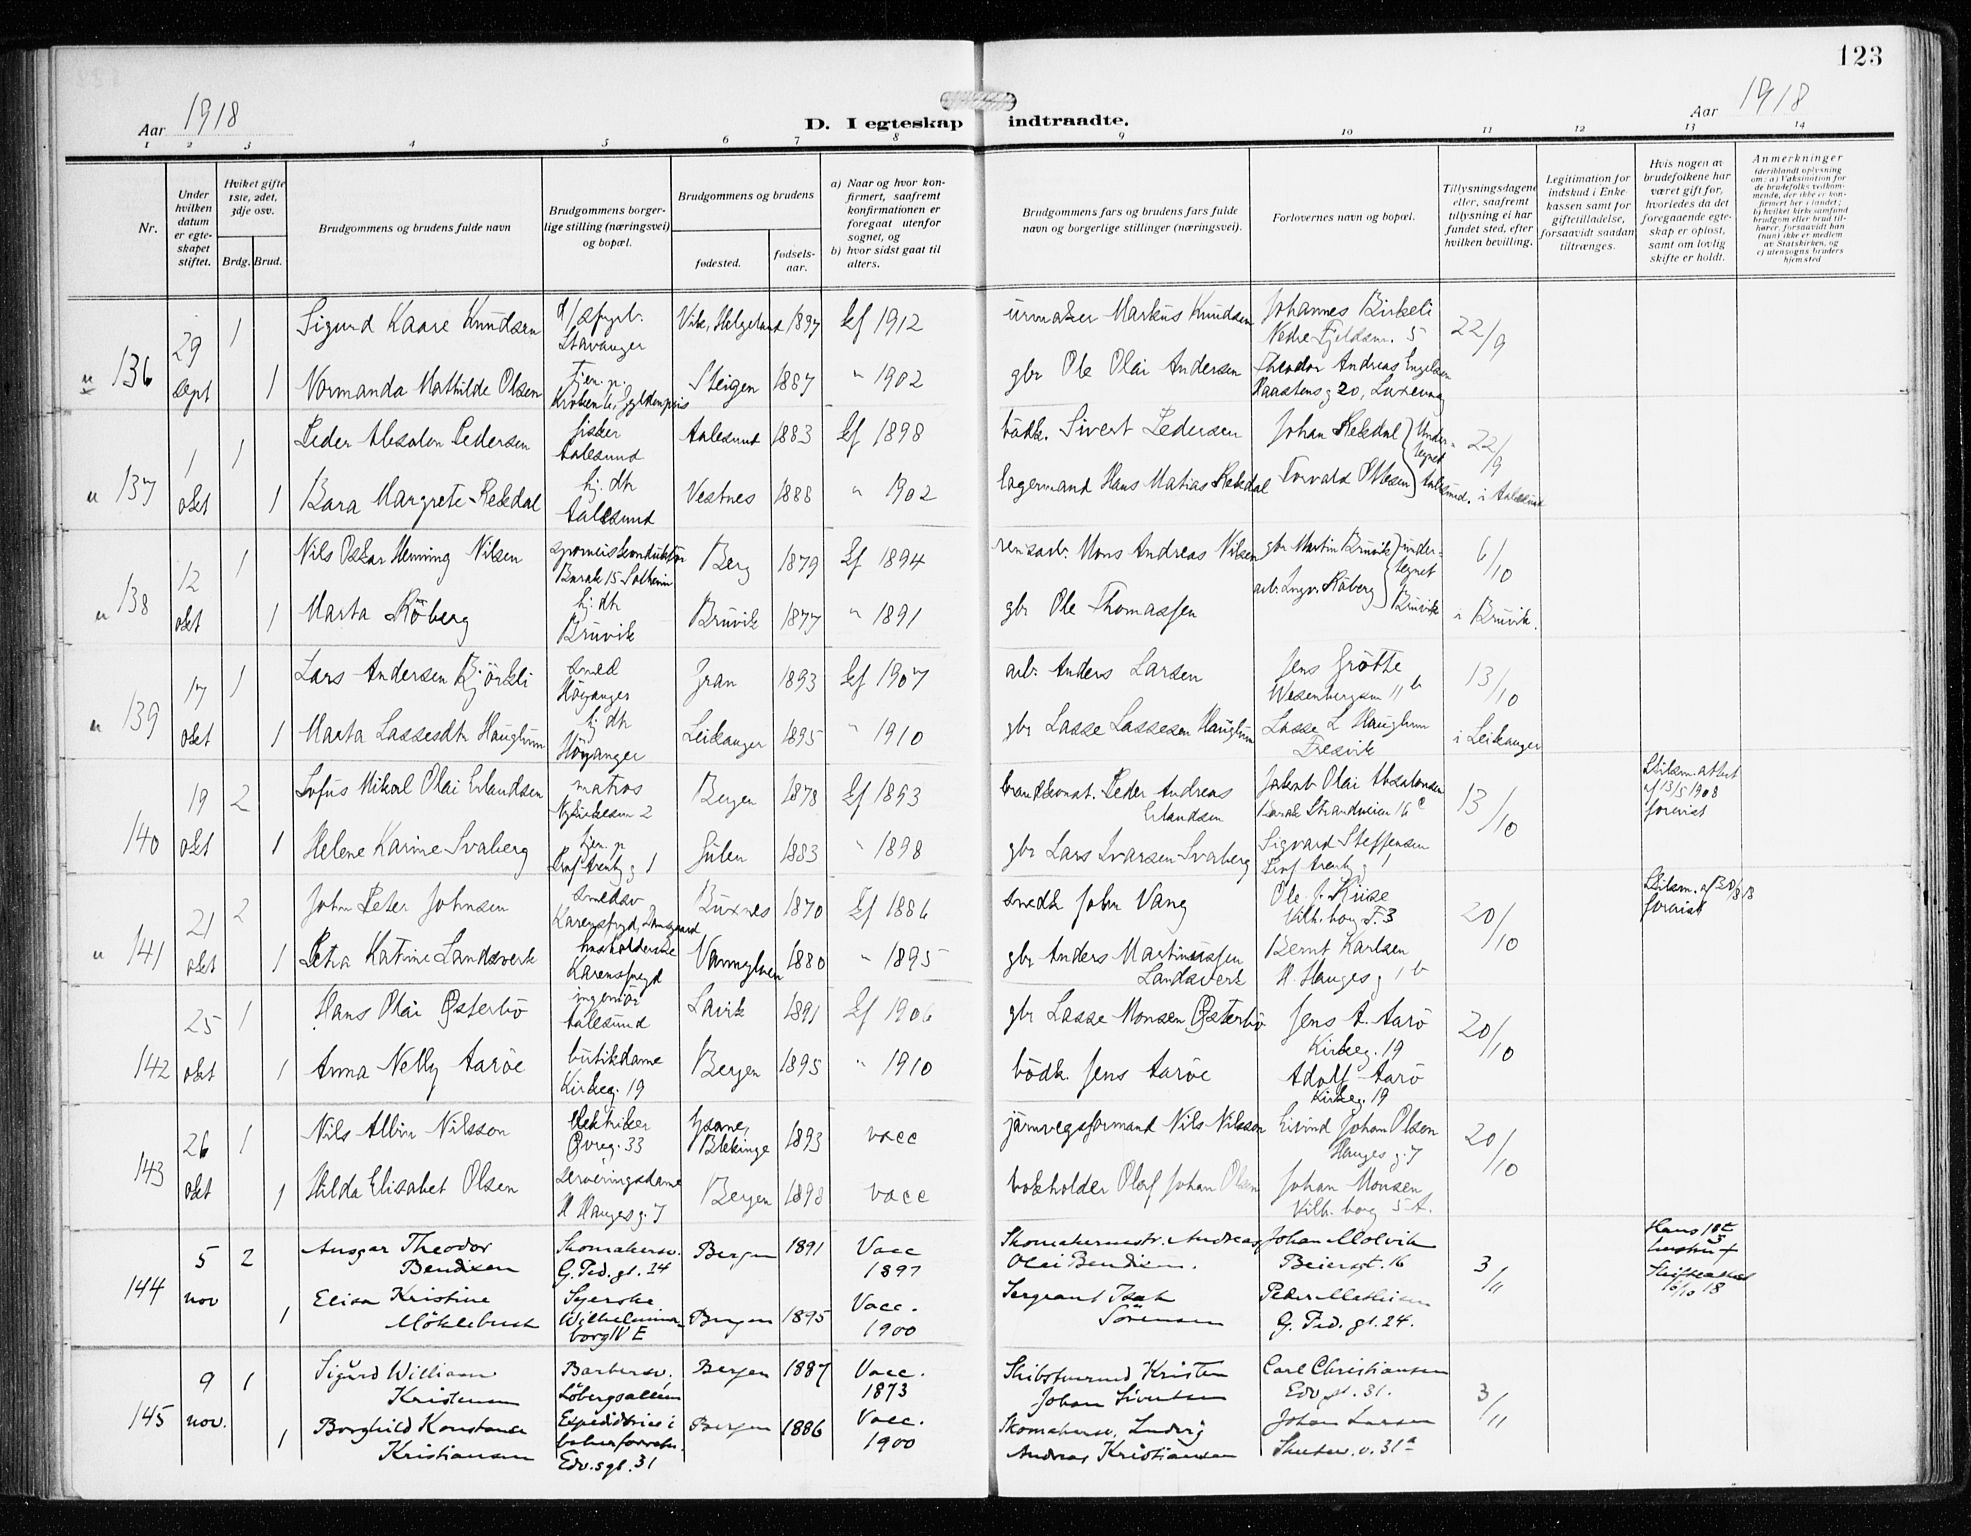 123
Aar 1918
D. I egteskap indtraadte.
Aar 1918
1 2 3 4 5 6 7 8 9 10 11 12 13 14
Nr.
Under hvilken datum er egteskapet stiftet.
Hvilket gifte 1ste, 2det, 3dje osv.
Brdg. Brud.
Brudgommens og brudens fulde navn
Brudgommens borgerlige stilling (næringsvei) og bopæl.
Brudgommens og brudens
fødested.
fødselsaar.
a) Naar og hvor konfirmert, saafremt konfirmationen er foregaat utenfor sognet, og
b) hvor sidst gaat til alters.
Brudgommens fars og brudens fars fulde navn og borgerlige stillinger (næringsvei).
Forlovernes navn og bopæl.
Tillysningsdagene eller, saafremt tillysning ei har fundet sted, efter hvilken bevilling.
Legitimation for indskud i Enkekassen samt for giftetilladelse, forsaavidt saadan tiltrænges.
Hvis nogen av brudefolkene har været gift før, hvorledes da det foregaaende egteskap er opløst, samt om lovlig skifte er holdt.
Anmerkninger (deriblandt oplysning om: a) Vaksination for de brudefolks vedkommende, der ikke er konfirmert her i landet; b) hvilket kirkesamfund brudgom eller brud tilhører, forsaavidt han (hun) ikke er medlem av Statskirken, og c) utensogns bruders hjemsted
136 29 sept 1 Sigurd Kaare Knudsen Stavanger Vik, Helgeland 1897 Ef 1912 urmaker Markus Knudsen Johannes Birkeli Nedre Fjeldsm. 5 22/9
1 Normanda Mathilde Olsen tjen.p. Steigen 1887 " 1902 gbr Ole Olai Andersen Theodor Andreas Engelsen
137 1 okt 1 Peder Absalon Pedersen fisker Aalesund Aalesund 1883 Ef 1898 bødk. Sivert Pedersen Johan Rekdal 22/9
1 Bara Margrete Rekdal hj. dtr Aalesund Vestnes 1888 " 1902 lagermand Hans Matias Rekdal i Aalesund
138 12 okt 1 Nils Oskar Henning Nilsen Barak 15 Solheim Berg 1879 Ef 1894 Mons Andreas Nilsen gbr Martin Bruvik 6/10
1 Marta Råberg hj. dtr Bruvik Bruvik 1877 " 1891 gbr Ole Thomassen arb. Ingv. Råberg undertegnet Bruvik i Bruvik.
139 17 okt 1 Lars Andersen Bjørkli smed Høyanger Gran 1893 Ef 1907 arb. Anders Larsen Jens Grøtte Wesenbergsm 11 b 13/10
1 Marta Lassesdtr Hauglum hj. dtr Høyanger Leikanger 1895 " 1910 gbr Lasse Lassesen Hauglum Lasse L Hauglum Fresvik i Leikanger
140 19 okt 2 Sofus Mikal Olai Erlandsen matros Nykirkesm 2 Bergen 1878 Ef 1893 brandkonst. Peder Andreas Erlandsen Jakob Olai Absalonsen Barak Strandveien 16 c 13/10 Skilsm. attest af 13/5 1908 forevist
1 Helene Karine Svaberg tjen. p Gulen 1883 " 1898 gbr Lars Ivarsen Svaberg Sigvard Steffensen
141 21 okt 2 John Peter Johnsen smedsv Karensfryd, Damsgaard Buxnes 1870 Ef 1886 smedk John Vang Ole J. Kiise Vilh. borg F. 3 20/10 forevist
1 Petra Katrine Landsverk husholderske Karensfryd 1880 " 1895 gbr Anders Martinussen Landsverk Bernt Karlsen H Hauges g 1 b
142 25 okt 1 Hans Olai Østerbø ingeniør Aalesund Lavik 1891 Ef 1906 gbr Lasse Monsen Østerbø Jens A. Aarø Kirkeg. 19 20/10
1 Anna Nelly Aarøe butikdame Kirkeg. 19 Bergen 1895 " 1910 bødk. Jens Aarøe Adolf Aarø Kirkeg. 19
143 26 okt 1 Nils Albin Nilsson elektriker Øvreg. 33 Ysane, Blekinge 1893 vacc järnvegsformand Nils Nilsson Eivind Johan Olsen Hauges g. 7 20/10
1 Hilda Elisabet Olsen serveringsdame H Hauges g. 7 Bergen 1898 vacc bokholder Olaf Johan Olsen Johan Monsen Vilh. borg 5 A.
144 5 nov 2 Ansgar Theodor Bendixen Skomakersv. G. Ped. gt. 24 Bergen 1891 Vacc 1897 Skomakermestr. Andreas Olai Bendixen. Johan Molvik Beierst. 16 3/11
1 Elisa Kristine Møklebust Syerske Wilhelminaborg IV E Bergen 1895 Vacc. 1900 Sergeant Isak Sörensen Peder Mathisen G. Ped. gt. 24.
145 9 nov. 1 Sigurd William Kristensen Barbersv. Løbergsalleen Bergen 1887 Vacc. 1873 Kristen Johan Sivertsen Carl Christiansen Edv. gt. 31. 3/11
1 Borghild Konstance Kristiansen Edv.sgt. 31 Bergen 1886 Vacc. 1900 Skomakersv. Ludvig Andreas Kristiansen Johan Larsen Skutev. v. 31 a